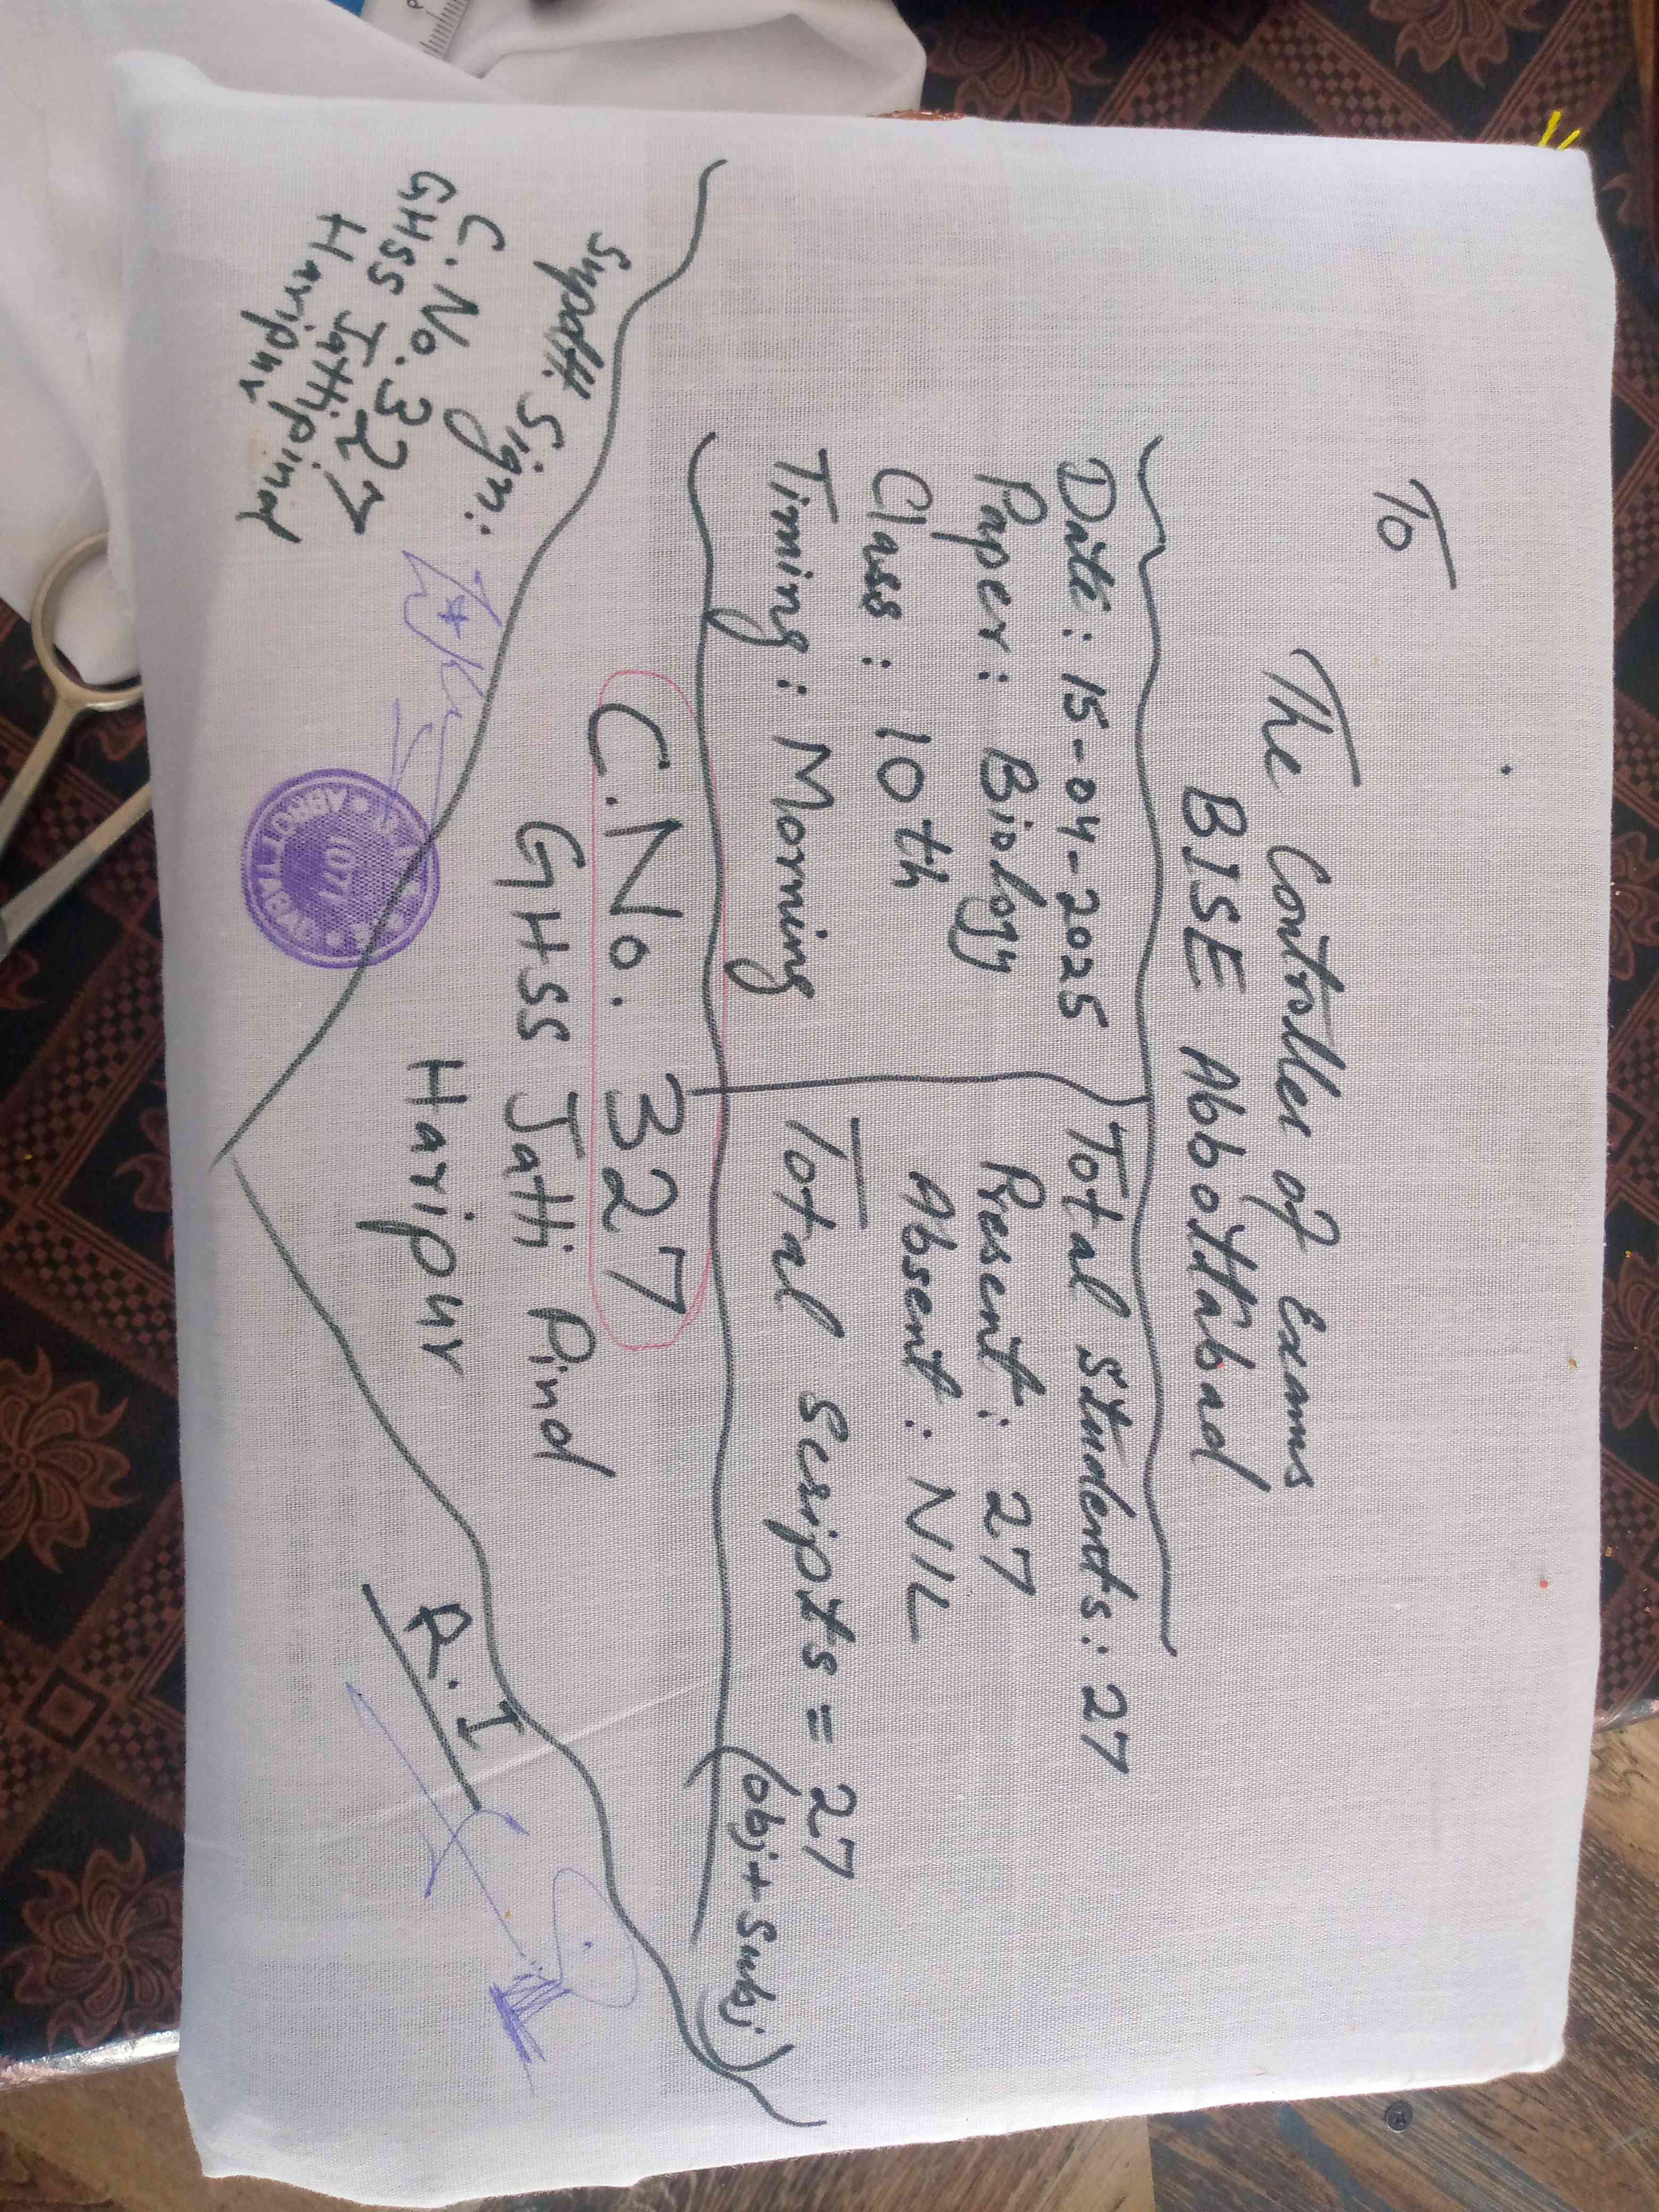 To
The Controller of Exams
BISE Abbottabad
Date : 15-04-2025
Paper : Biology
Class : 10th
Timing : Morning
Total Students : 27
Present : 27
Absent : NIL
Total Scripts = 27
(obj + Subj)
C. No. 327
GHSS Jatti Pind
Haripur
Supdtt. Sign:
C. No. 327
GHSS Jatti pind
Haripur
1071
ABBOTTABAD
R.I